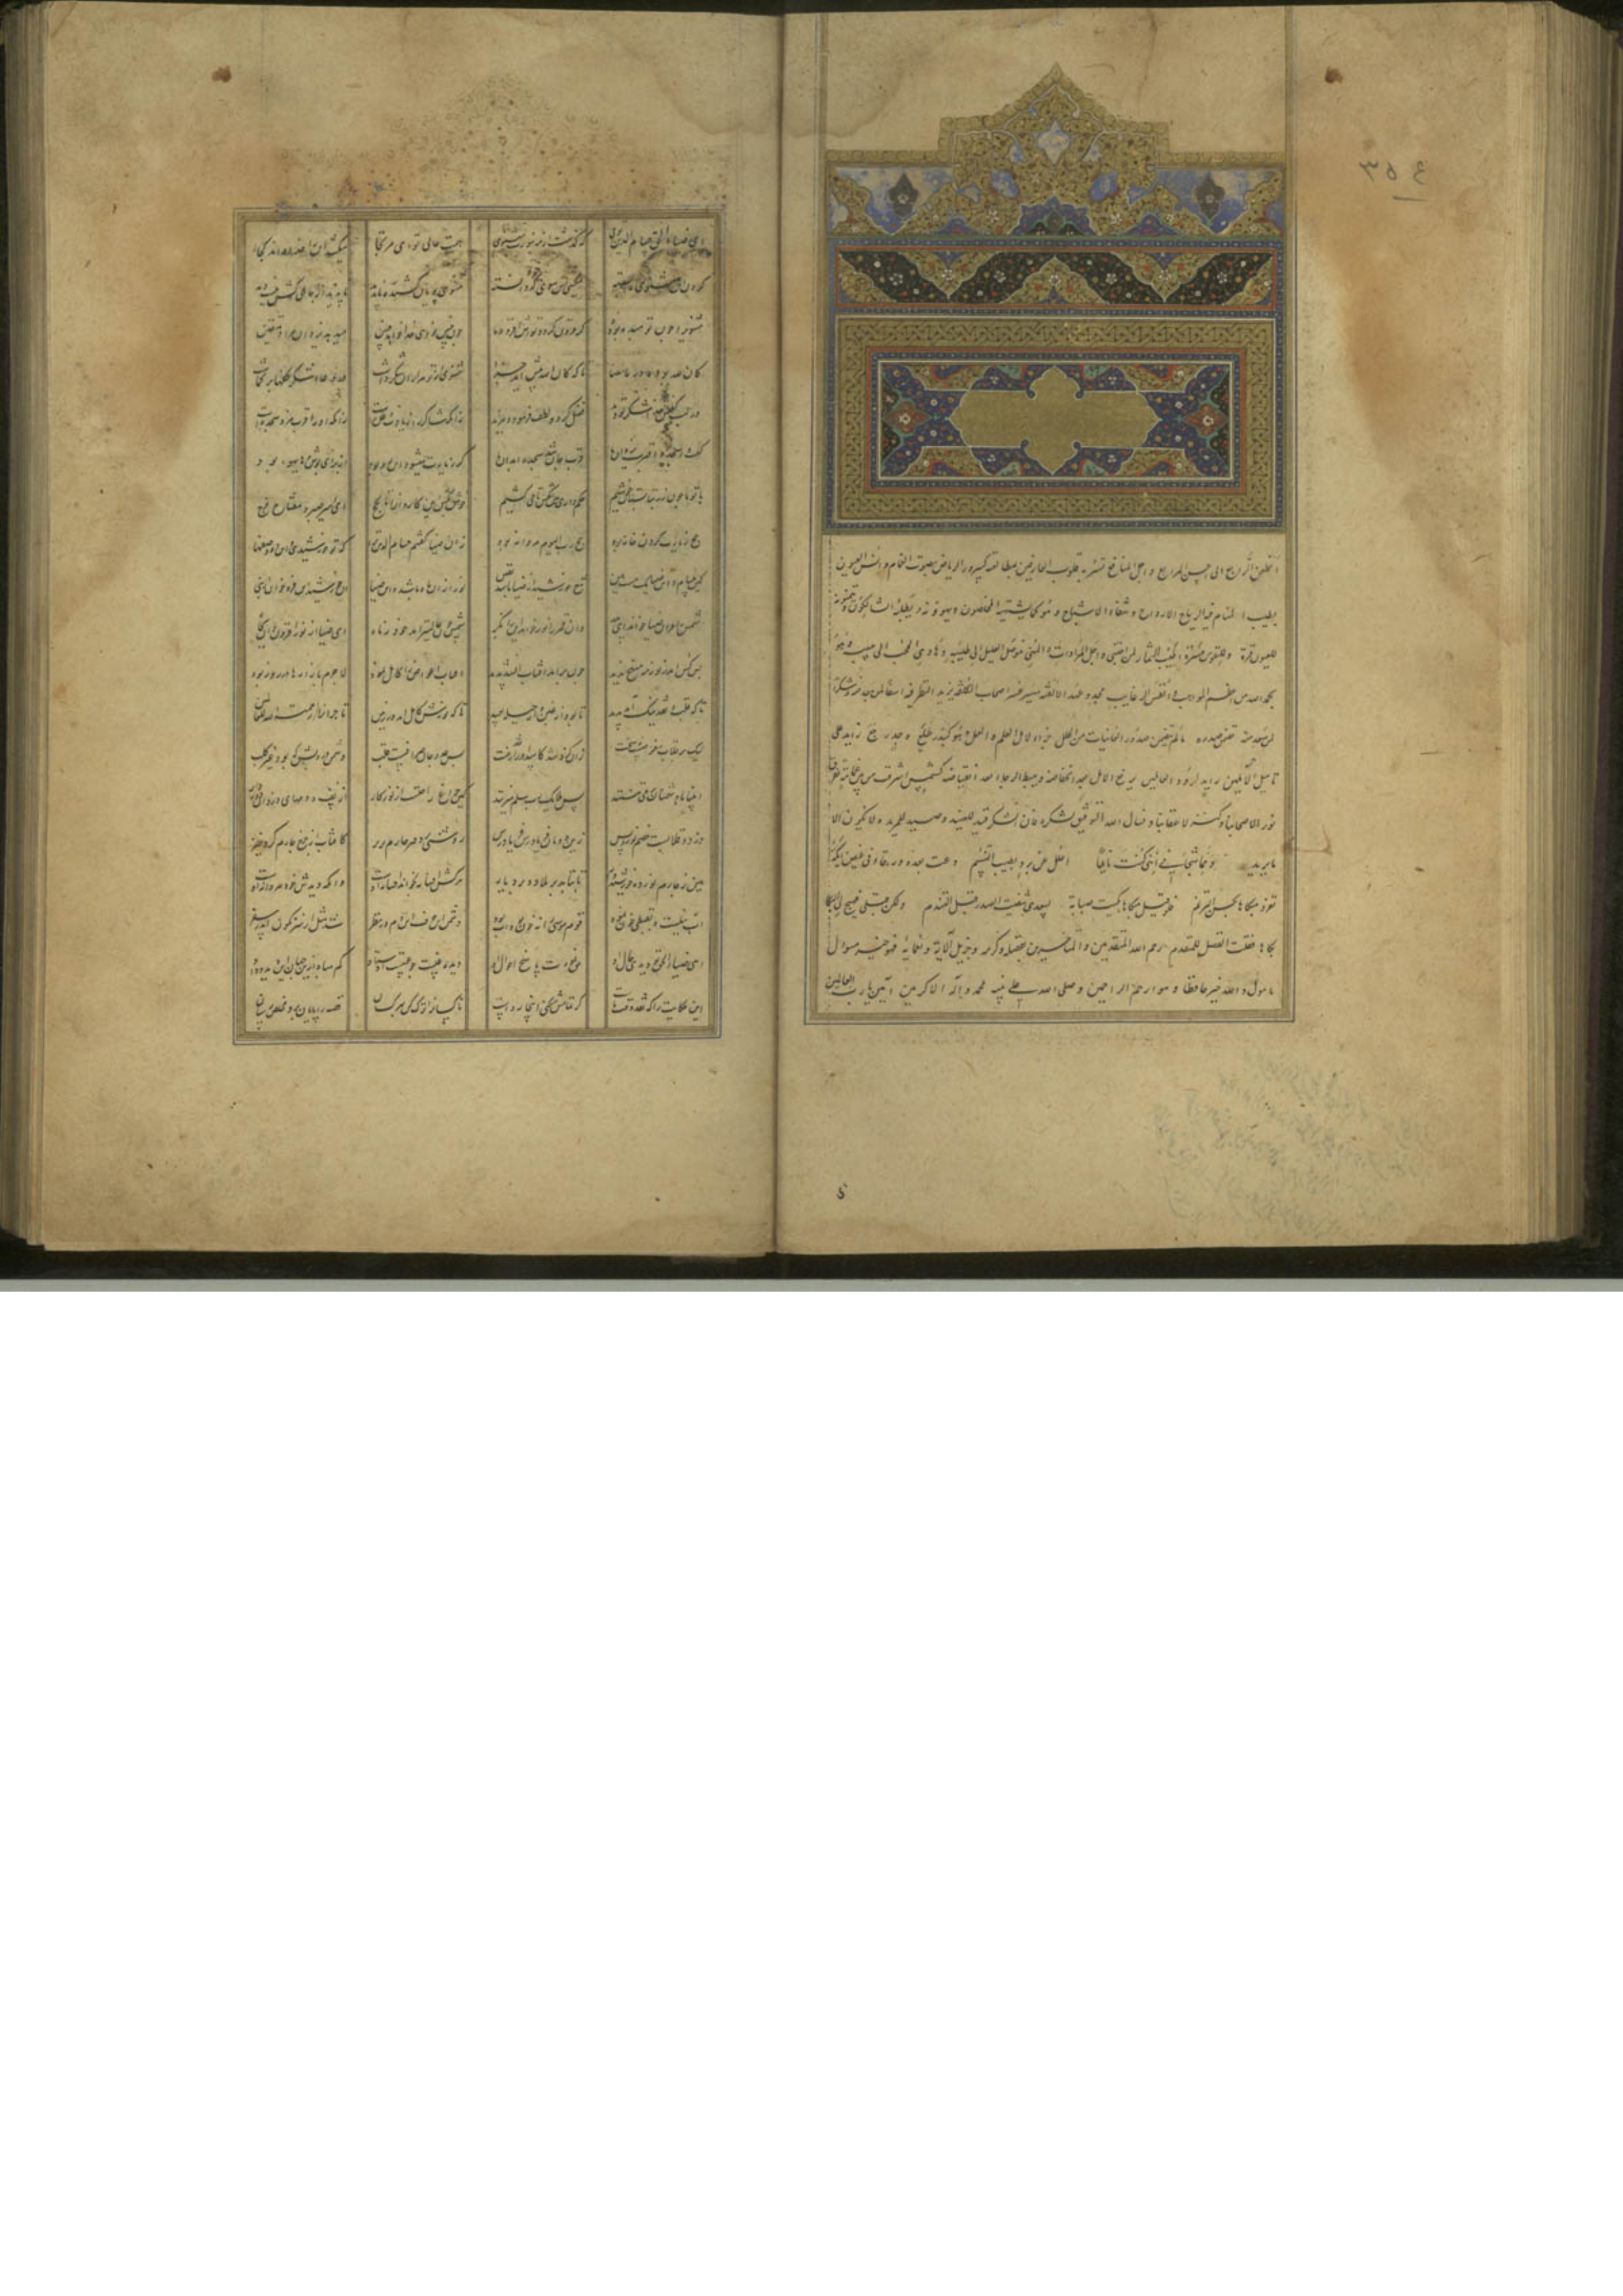 ۳۵٤
الظعن الرابع الی احسن المرابع و اجل المنافع تسر به قلوب العارفین بمطالعته کسرور الریاض بصوت الغمام و انس العیون
بطیب المنام فیه ارتیاح الارواح و شفاء الاشباح و هو کما یشتهیه المخلصون و یهوونه و یطلبه السالکون و یتمنونه
للعیون قرة و للنفوس مسرة اطیب الثمار لمن اجتنی و اجل المرادات و المنی موصل العلیل الی طبیبه و هادی المحب الی حبیبه و هو
بحمد الله من اعظم المواهب و انفس الرغایب مجدد عهد الالفة میسر عسر اصحاب الکلفة یزید النظر فیه اسفا لمن بعد و شکرا
لمن سعد تضمن صدره ما لم یتضمن صدور الغانیات من الحلل جزاء لاهل العلم و العمل و هو کبدر طلع و جد رجع زاید علی
تامیل الآملین راید لرود العاملین یرفع الامل بعد انخفاضه و یبسط الرجاء بعد انقباضه کشمس اشرقت من بین غمام تفرقت
نور لاصحابنا و کنز لاعقابنا و نسال الله التوفیق لشکره فان الشکر قید للعتید و صید للمزید و لا یکون الا
ما یرید و مما شجانی اننی کنت نایما اعلل من برد بطیب التنسم دعت ورقاء فی غصن ایکة
تغرد مبکاها بحسن الترنم فلو قبل مبکاها بکیت صبابة بسعدی شفیت الصدر قبل التندم ولکن بکت قبلی فهیج لی البکا
بکاها فقلت الفضل للمتقدم رحم الله المتقدمین و المتاخرین بفضله و کرمه و جزیل آلائه و نعمائه فهو خیر مسول
مامول و الله خیر حافظا و هو ارحم الراحمین و صلی الله علی نبیه محمد و آله الاکرمین آمین یا رب العالمین
ای ضیاء الحق حسام الدین توی که گذشت از مه بنورت مثنوی همت عالی تو ای مرتجا میکشد این را خدا داند کجا
گردن این مثنوی را بسته میکشی آن سوی که دانسته مثنوی پویان کشنده ناپدید ناپدید از جاهلی کش نیست دید
مثنوی را چون تو مبدا بوده گر فزون گردد توش افزوده چون چنین خواهی خدا خواهد چنین میدهد حق آرزوی متقین
کان لله بوده در ما مضی تا که کان الله پیش آمد جزا مثنوی از تو هزاران شکر داشت در دعا و شکر کفها بر فراشت
در لب و کفش خدا شکر تو دید فضل کرد و لطف فرمود و مزید زانکه شاکر را زیادت وعده است زانکه او را قرب مزد سجده است
گفت و اسجد و اقترب یزدان ما قرب جان شد سجده ابدان ما گر زیادت میشود این رو بود از برای بوش و های و هو بود
با تو ما چون رز بتابستان خوشیم حکم داری هین بکش تا میکشیم خوش بکش این کاروان را تا بحج ای امیر صبر و مفتاح الفرج
حج زیارت کردن خانه بود حج رب البیت مردانه بود زان ضیا گفتم حسام الدین ترا که تو خورشیدی و این دو وصفها
کین حسام و این ضیا یکیست هین تیغ خورشید از ضیا باشد یقین نور از آن ماه باشد وین ضیا آن خورشید این فرو خوان از نبی
شمس را قرآن ضیا خواند ای پدر وان قمر را نور خواند این را نگر شمس چون عالیتر آمد خود ز ماه
بس کس اندر نور مه منهج ندید چون بر آمد آفتاب آن شد پدید آفتاب اعواض را کامل نمود لاجرم بازارها در روز بود
تا که قلب و نقد نیک آید پدید تا بود از غبن و از حیله بعید تا که نورش کامل آمد در زمین تاجران را رحمة للعالمین
لیک بر قلاب مبغوضست سخت زانکه ازو شد کاسد او را نقد و رخت پس عدو جان صرافست قلب دشمن درویش که بود غیر کلب
انبیا با دشمنان بر می تنند پس ملایک رب سلم میزنند کین چراغی را که هست او نورکار از پف و دمهای دزدان دور دار
دزد و قلابست خصم نور بس زین دو ای فریادرس فریاد رس روشنی بر دفتر چارم بریز کافتاب از چرخ چارم کرد خیز
هین ز چارم نور ده خورشیدوار تا بتابد بر بلاد و بر دیار هر کش افسانه بخواند افسانه است وانکه دیدش نقد خود مردانه است
آب نیلست و بقبطی خون نمود قوم موسی را نه خون بد آب بود دشمن این حرف این دم در نظر شد ممثل سرنگون اندر سقر
ای ضیاء الحق تو دیدی حال او حق نمودت پاسخ احوال او دیده غیبت چو غیبست اوستاد کم مبادا زین جهان این دید و داد
این حکایت را که نقد وقت ماست گر تمامش میکنی اینجا رواست ناکسان را ترک کن بهر کسان قصه را پایان بر و مخلص رسان